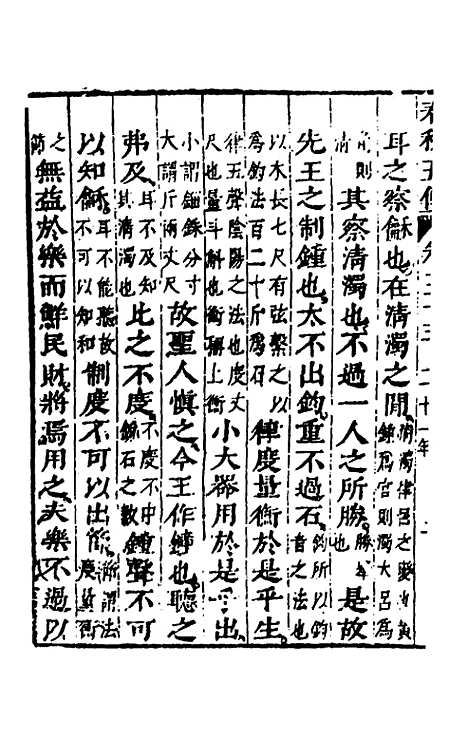 耳之察龢也在清濁之閒清濁律呂之變黃鍾爲宮則濁大呂爲
角則清其察清濁也不過一人之所勝勝也是故
先王之制鍾也大不出鈞重不過石鈞所以鈞音之法也
以木長七尺有弦繫之以爲鈞法百二十斤爲石律度量衡於是乎生
律五聲陰陽之法也度丈尺也量斗斛也衡稱上衡小大器用於是乎出
小謂錙銖分寸大謂斤兩丈尺故聖人愼之今王作鍾也聽之
弗及耳不及知其清濁也比之不度不度不中鈞石之數鍾聲不可
以知龢耳不能聽故不可以知和制度不可以出節節謂法度量衡
之節無益於樂而鮮民財將焉用之夫樂不過以